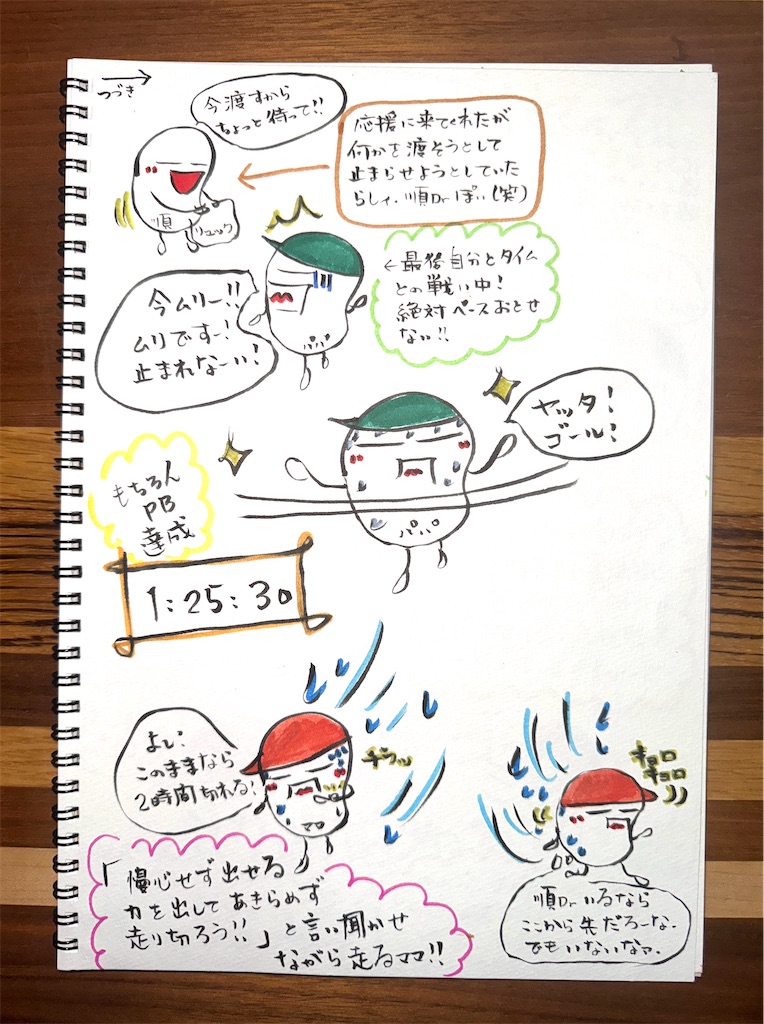 つづき
今渡すから
ちょっと待って!!
応援に来てくれたが
何かを渡そうとして
止まらせようとしていた
らしい. 順Drぽい(笑)
順
リュック
←最後自分とタイム
との戦い中!
絶対ペースおとせ
ない!!
今ムリー!!
ムリですー!
止まれなーい!
パパ
ヤッタ!
ゴール!
もちろん
PB
達成
パパ
1:25:30
よし!
このままなら
2時間切れる!
チラッ
ママ
キョロ
キョロ
「慢心せず出せる
力を出してあきらめず
走り切ろう!!」と言い聞かせ
ながら走るママ!!
順Drいるなら
ここから先だろーな.
でもいないなァ.